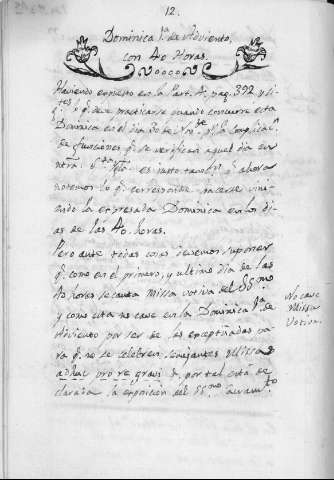 12.
Dominica 1ª de Adviento,
con 40 Horas.
Haviendo expuesto en la Part. A. pag. 392 y si-
g.tes lo q.e deve practicarse cuando concurre esta
Dominica en el dia 30 de Nov.re p.r la complicac.n
de funciones q.e se verifican aquel dia en
ntra. S.ta Ygl.a es justo tambi.n q.e ahora
notemos lo q.e corresponde hacerse vini-
endo la expresada Dominica en los di-
as de las 40. horas.
Pero ante todas cosas devemos suponer
q.e como en el primero, y ultimo dia de las
40 horas se canta Missa votiva del SS.mo
y como esta no cave en la Dominica 1ª de
Adviento por ser de las exceptuadas pa-
ra q.e no se celebren semejantes Missas
adhuc pro re gravi p.r tal está de-
clarada la exposicion del SS.mo Sacram.to
No cave
Missa
Votiva.